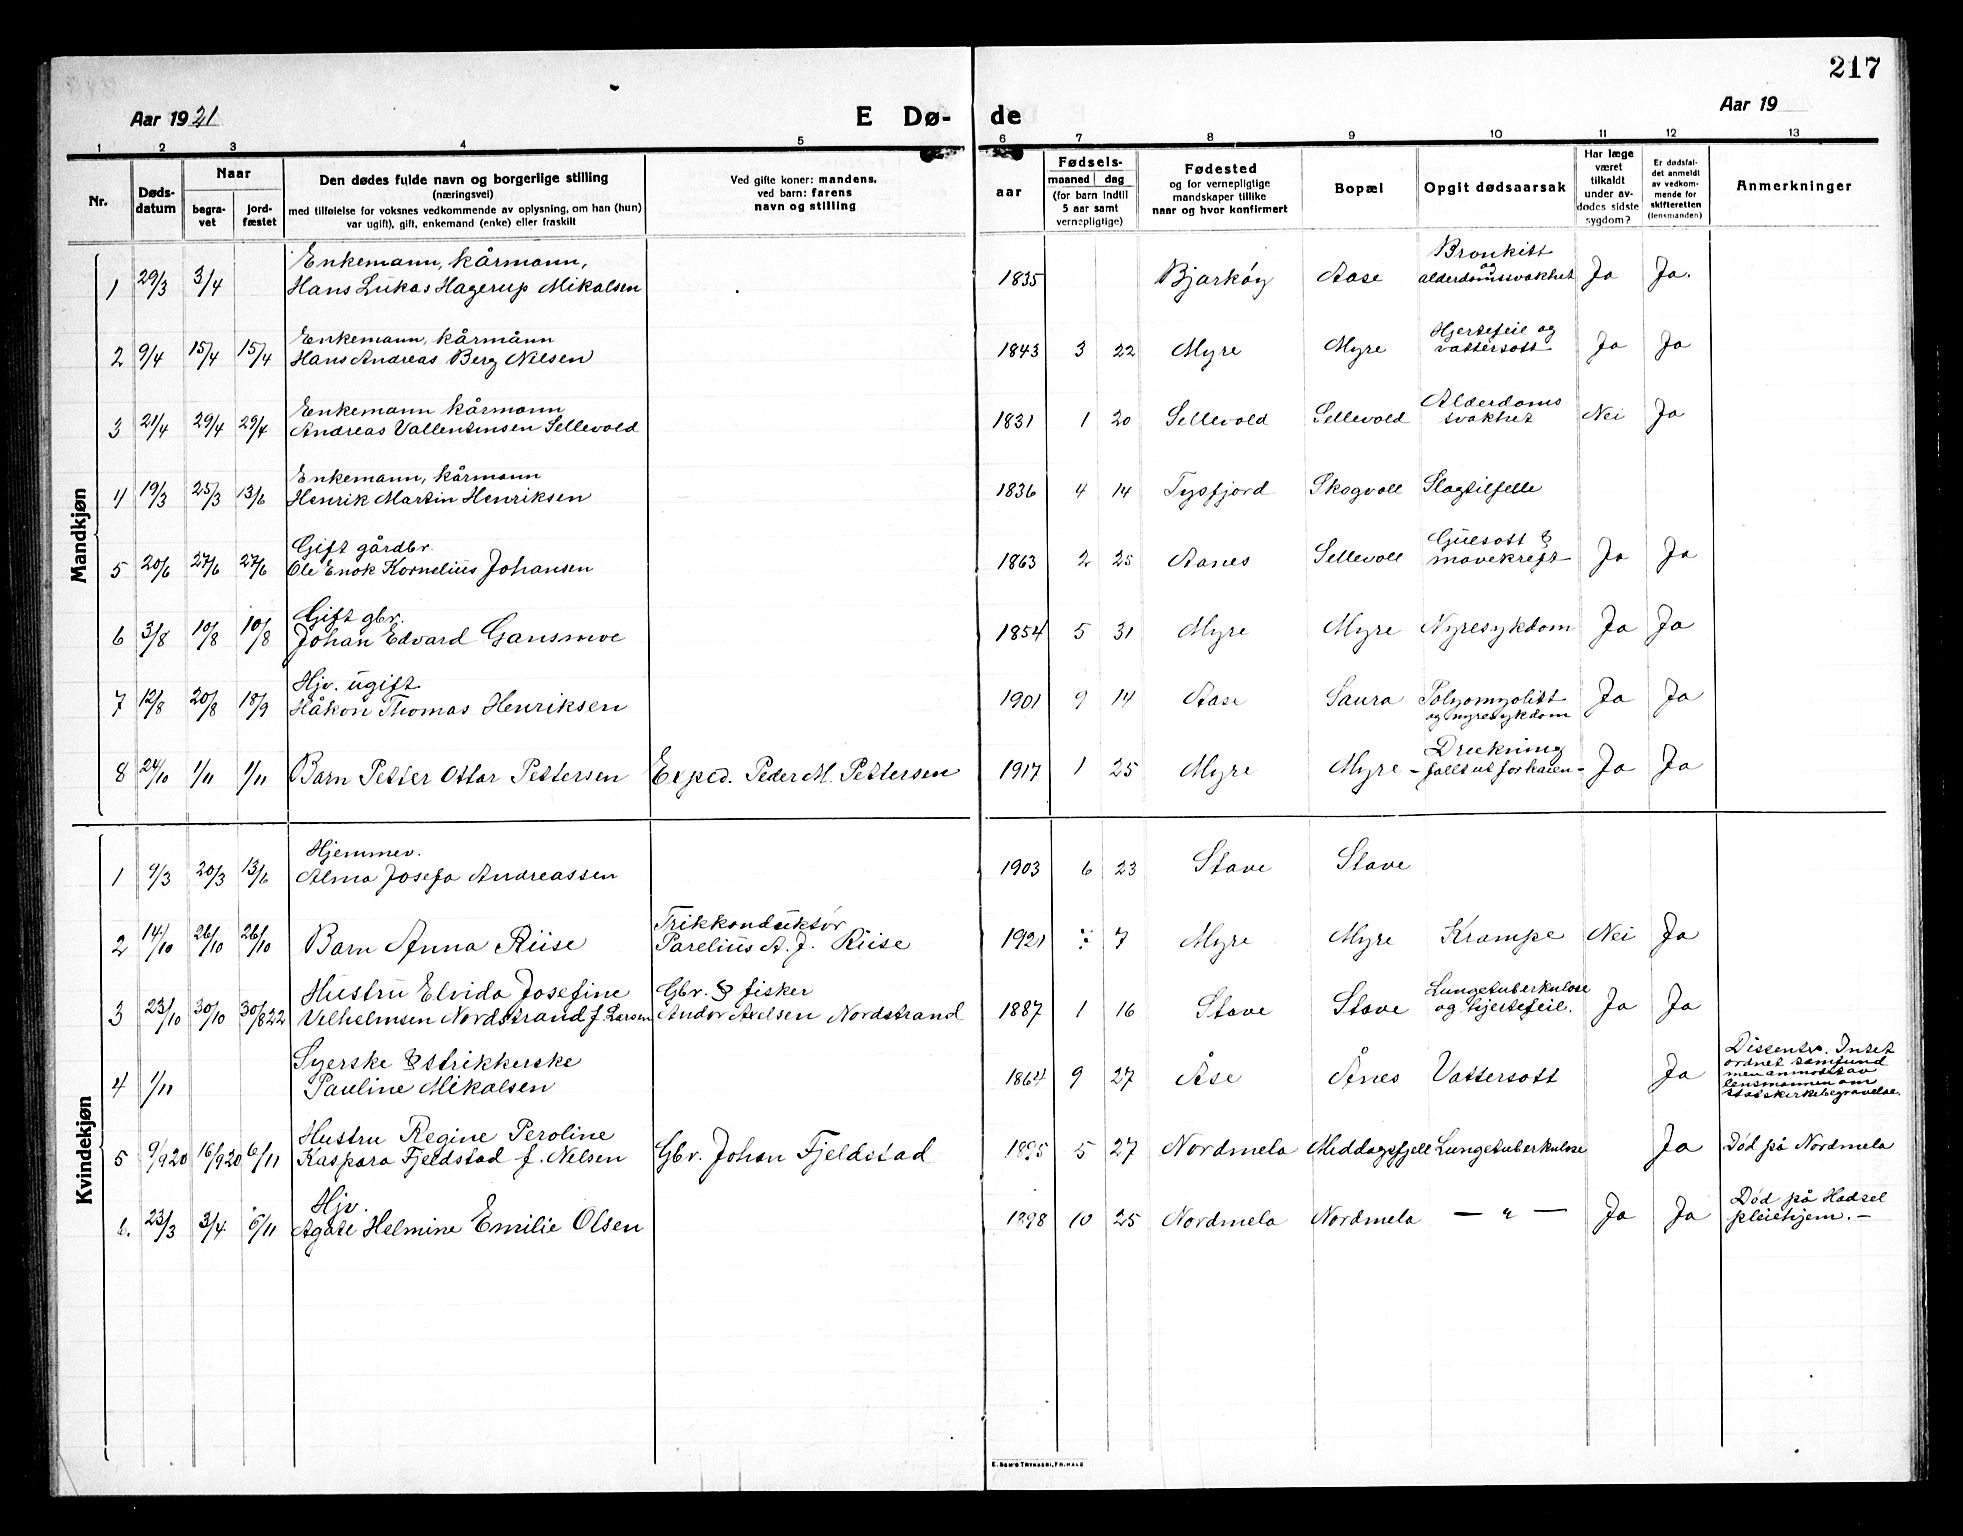 217
Aar 1921
E Dø-
de
Aar 19
1 2 3 4 5 6 7 8 9 10 11 12 13
Nr.
Døds-
datum
Naar
begra-
vet
jord-
fæstet
Den dødes fulde navn og borgerlige stilling
(næringsvei)
med tilføielse for voksnes vedkommende av oplysning, om han (hun)
var ugift), gift, enkemand (enke) eller fraskilt
Ved gifte koner: mandens,
ved barn: farens
navn og stilling
aar
Fødsels-
maaned dag
(for barn indtil
5 aar samt
vernepligtige)
Fødested
og for vernepligtige
mandskaper tillike
naar og hvor konfirmert
Bopæl
Opgit dødsaarsak
Har læge
været
tilkaldt
under av-
dødes sidste
sygdom?
Er dødsfal-
det anmeldt
av vedkom-
mende for
skifteretten
(lensmanden)
Anmerkninger
Mandkjøn
Enkemann, kårmann,
1 29/3 3/4 Hans Lukas Hagerup Mikalsen 1835 Bjarkøy Aase Bronkitt
og
alderdomssvakhet Ja Ja.
Enkemann, kårmann
2 9/4 15/4 15/4 Hans Andreas Berg Nilsen 1843 3 22 Myre Myre Hjertefeil og
vattersott Ja Ja
Enkemann kårmann
3 21/4 29/4 29/4 Andreas Vallentinsen Sellevold 1831 1 20 Sellevold Sellevold Alderdoms
svakhet Nei Ja
Enkemann, kårmann
4 19/3 25/3 13/6 Henrik Martin Henriksen 1836 4 14 Tysfjord Skogvoll Slagtilfelle
Gift gårdbr.
5 20/6 27/6 27/6 Ole Enok Kornelius Johansen 1863 2 25 Aanes Sellevoll Gulsott &
mavekreft Ja Ja
Gift gbr.
6 3/8 10/8 10/8 Johan Edvard Gansmoe 1854 5 31 Myre Myre Nyresykdom Ja Ja
Hjv. ugift
7 12/8 20/8 18/9 Håkon Thomas Henriksen 1901 9 14 Aase Saura Polyomyolitt
og nyresykdom Ja Ja
8 24/10 1/11 1/11 Barn Petter Ottar Pettersen Exped. Peder M. Pettersen 1917 1 25 Myre Myre Drukning
- falt ut for kaien - Ja Ja
Kvindekjøn
Hjemmev.
1 9/3 20/3 13/6 Alma Josefa Andreassen 1903 6 23 Stave Stave
Trikkonduktør
2 14/10 26/10 26/10 Barn Anna Riise Parelius A. J. Riise 1921 7 Myre Myre Krampe Nei Ja
Hustru Elvida Josefine Gbr. & fisker
3 23/10 30/10 30/8 22 Vilhelmsen Nordstrand f. Larsen Andor Axelsen Nordstrand 1887 1 16 Stave Stave Lungetuberkulose
og hjertefeil. Ja Ja
Syerske & strikkerske
4 1/11 Pauline Mikalsen 1864 9 27 Åse Ånes Vattersott Ja Dissenter. Intet
ordnet samfund
men anmodet av
lensmannen om
statskirkebegravelse.
Hustru Regine Peroline
5 9/9 20 16/9 20 6/11 Kaspara Fjeldstad f. Nilsen Gbr. Johan Fjeldstad 1895 5 27 Nordmela Middagsfjell Lungetuberkulose Ja Død på Nordmela
Hjv.
6. 23/3 3/4 6/11 Agate Helmine Emilie Olsen 1898 10 25 Nordmela Nordmela — " — Ja Ja Død på Hadsel
pleiehjem. —
E. SEM'S TRYKKERI, FR.HALD